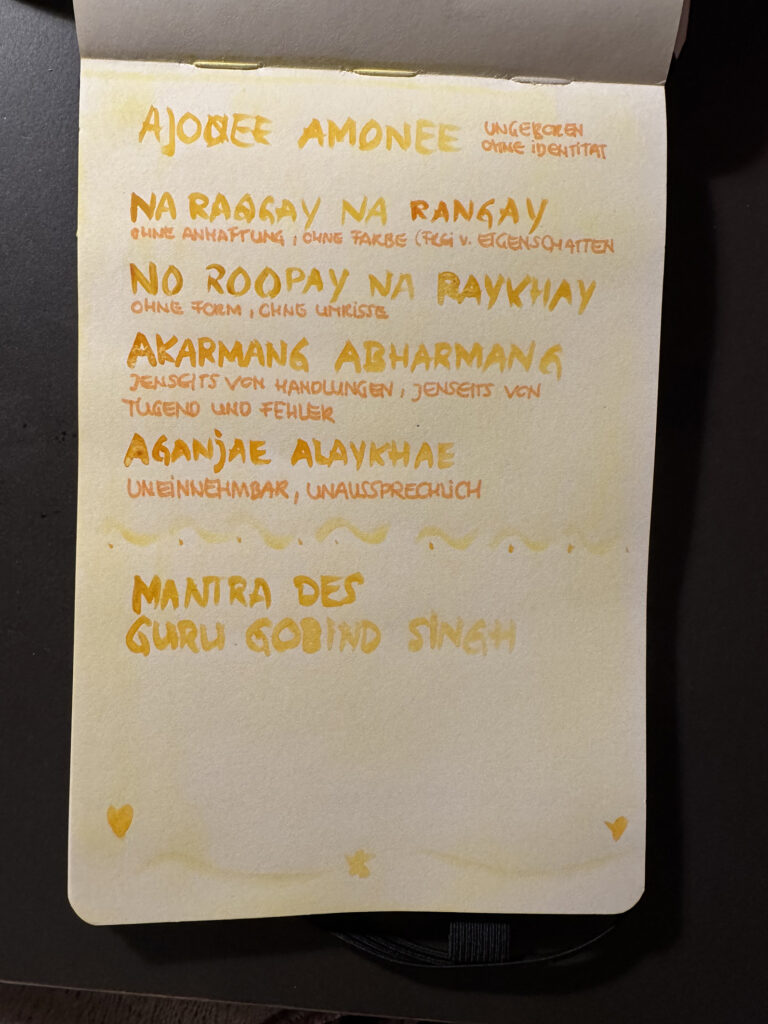 AJONEE AMONEE
UNGEBOREN
OHNE IDENTITÄT
NA RAGGAY NA RANGAY
OHNE ANHAFTUNG, OHNE FARBE (FREI V. EIGENSCHAFTEN
NO ROOPAY NA RAYKHAY
OHNE FORM, OHNE UMRISSE
AKARMANG ABHARMANG
JENSEITS VON HANDLUNGEN, JENSEITS VON
TUGEND UND FEHLER
AGANJAE ALAYKHAE
UNEINNEHMBAR, UNAUSSPRECHLICH
MANTRA DES
GURU GOBIND SINGH